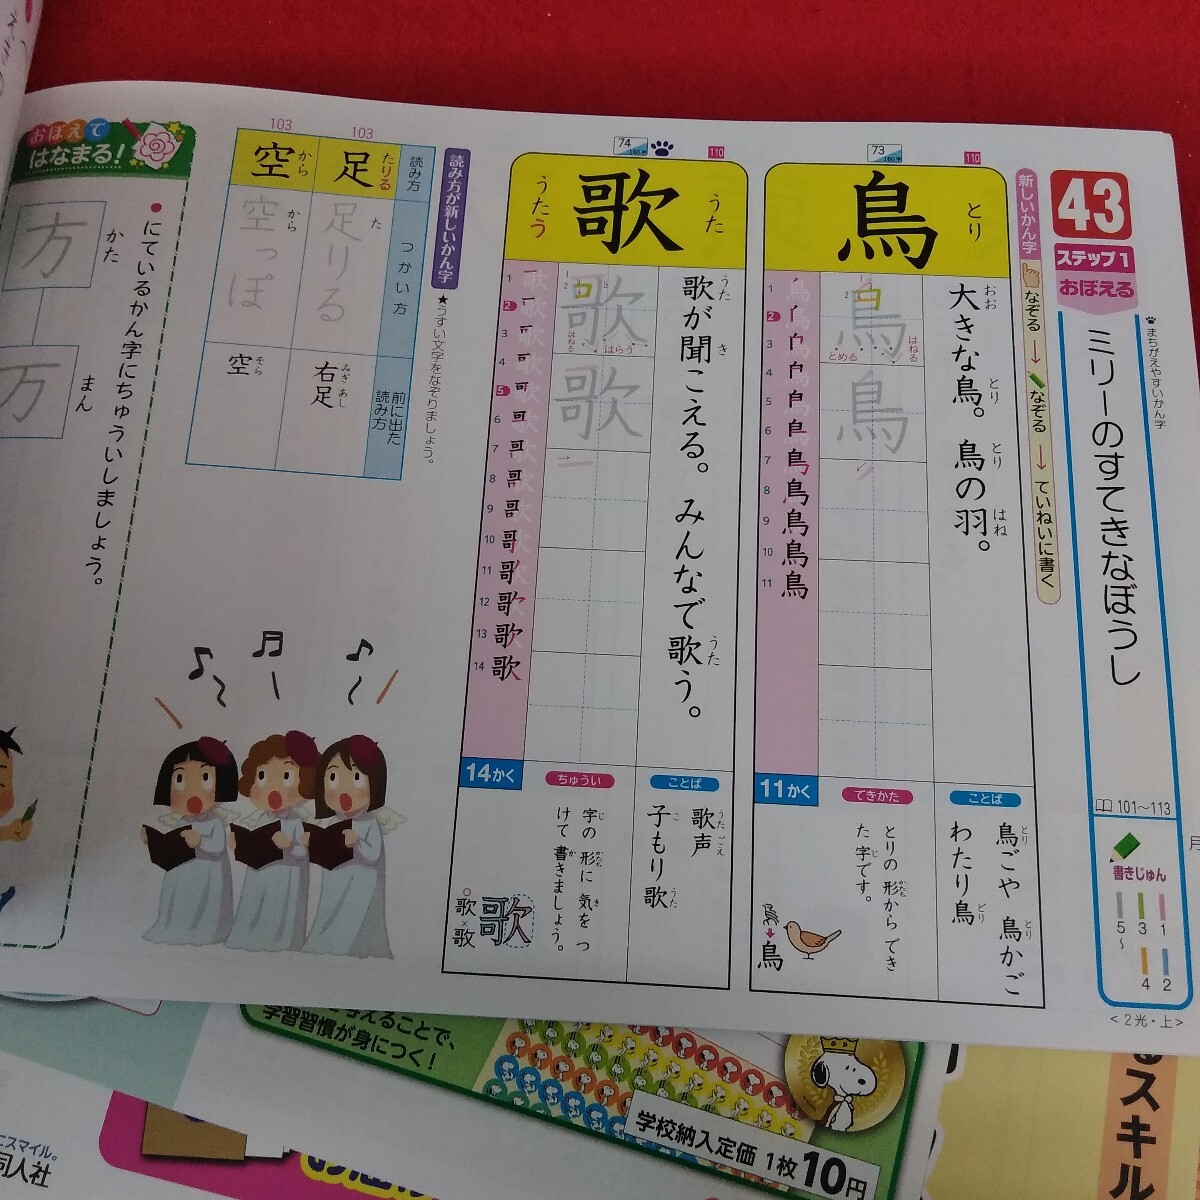 43
ステップ1
おぼえる
ミリーのすてきなぼうし
101〜113
まちがえやすいかん字
書きじゅん
1
2
3
4
5〜
<2光・上>
新しいかん字
なぞる→なぞる→ていねいに書く
73
160字
110
鳥
とり
大きな鳥。鳥の羽。
おお
とり
とり
はね
鳥
とめる
はねる
鳥
1
2
3
4
5
6
7
8
9
10
11
鳥
11かく
ことば
鳥ごや
鳥かご
わたり鳥
とり
とり
どり
できかた
とりの形からでき
た字です。
かたち
じ
鳥
74
160字
110
歌
うた
うたう
歌が聞こえる。みんなで歌う。
うた
き
うた
歌
はねる
はらう
歌
1
2
3
4
5
6
7
8
9
10
11
12
13
14
歌
14かく
ことば
歌声
子もり歌
うたごえ
こ
うた
ちゅうい
字の形に気をつ
けて書きましょう。
じ
かたち
き
か
歌
歌×歌
読み方が新しいかん字
★うすい文字をなぞりましょう。
103
103
読み方
つかい方
前に出た
読み方
足
たりる
足りる
た
右足
みぎあし
空
から
空っぽ
から
空
そら
おぼえて
はなまる!
●にているかん字にちゅういしましょう。
方
かた
万
まん
えることで、
学習習慣が身につく!
学校納入定価 1枚10円
スキル
スマイル。
同人社